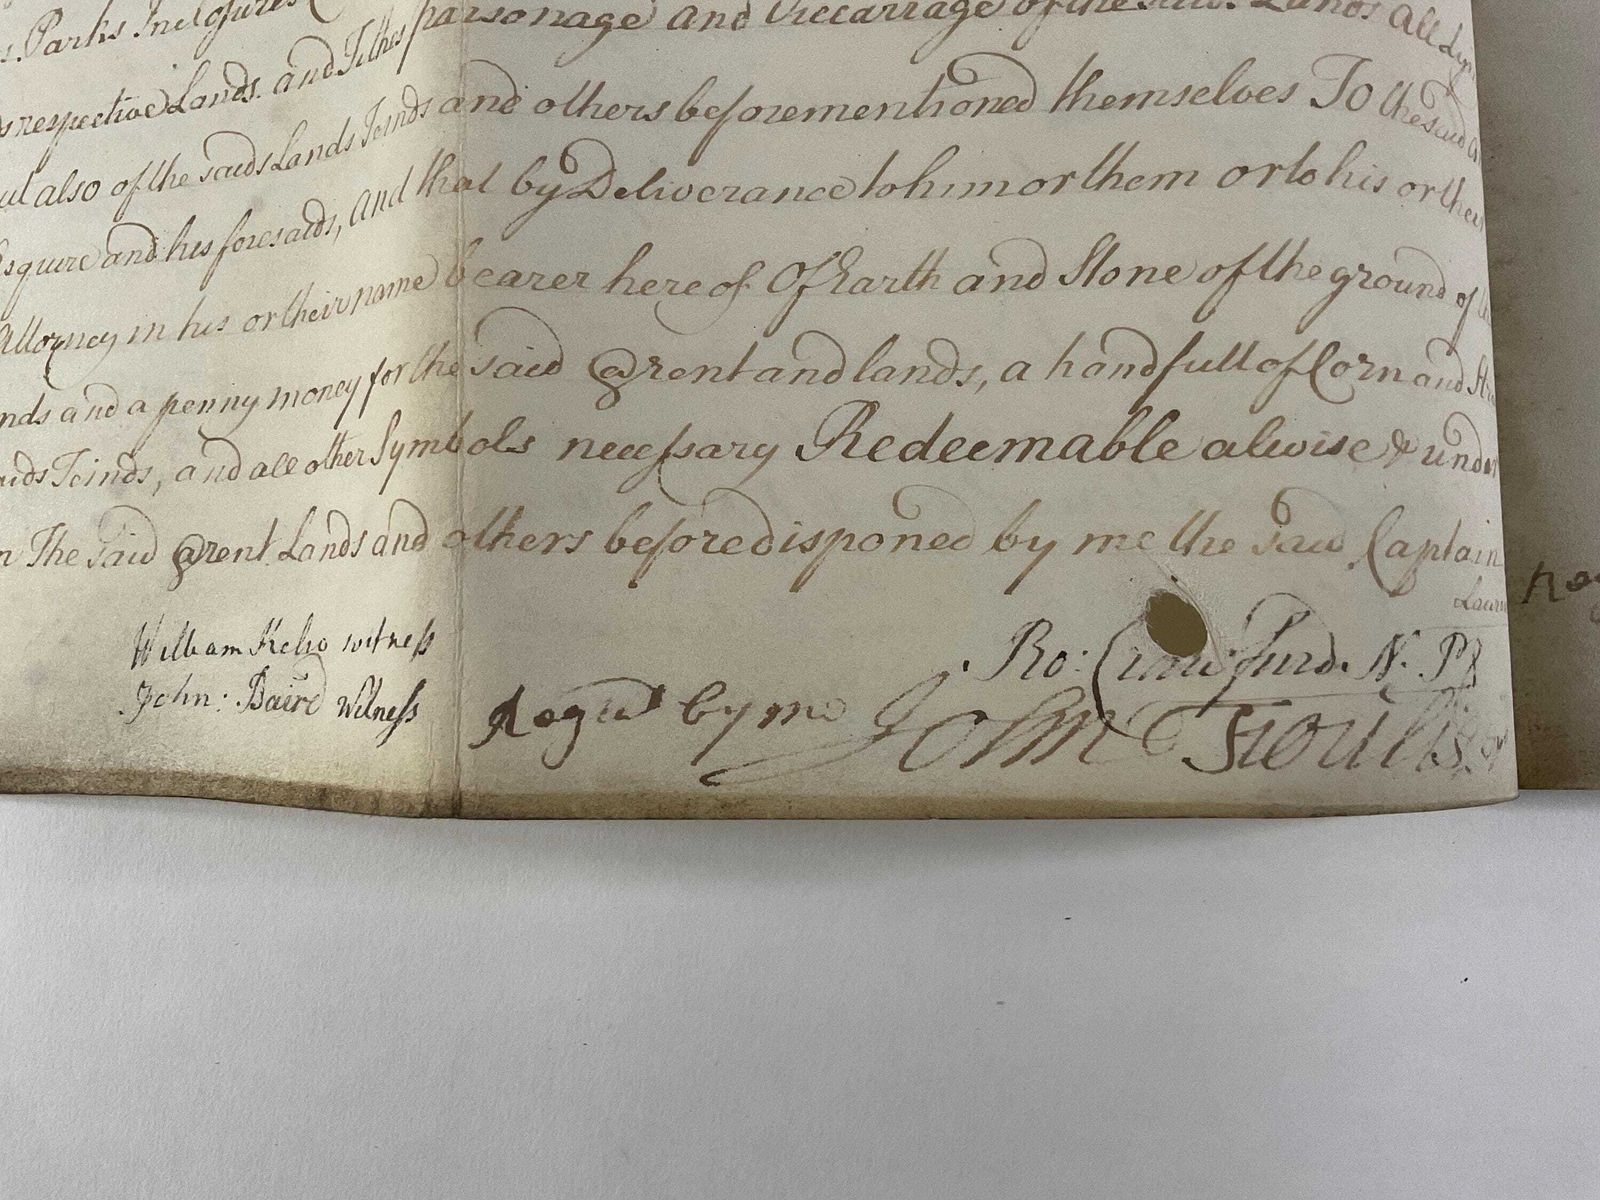 Parks Inclosures
parsonage and Viccarrage of the said Lands All
respective Lands and Tithes
also of the saids Lands Teinds and others beforementioned themselves To the said
Esquire and his foresaids, And that by Deliverance to him or them or to his or their
Attorney in his or their name bearer hereof Of Earth and Stone of the ground of
and a penny money for the said @rent and lands, a handfull of Corn and
Teinds, and all other Symbols necessary Redeemable alwise & under
The said @rent Lands and others beforedisponed by me the said Captain
William Kelso witness
John: Baird Witness
Ro: Craufurd. N. P.
by me John